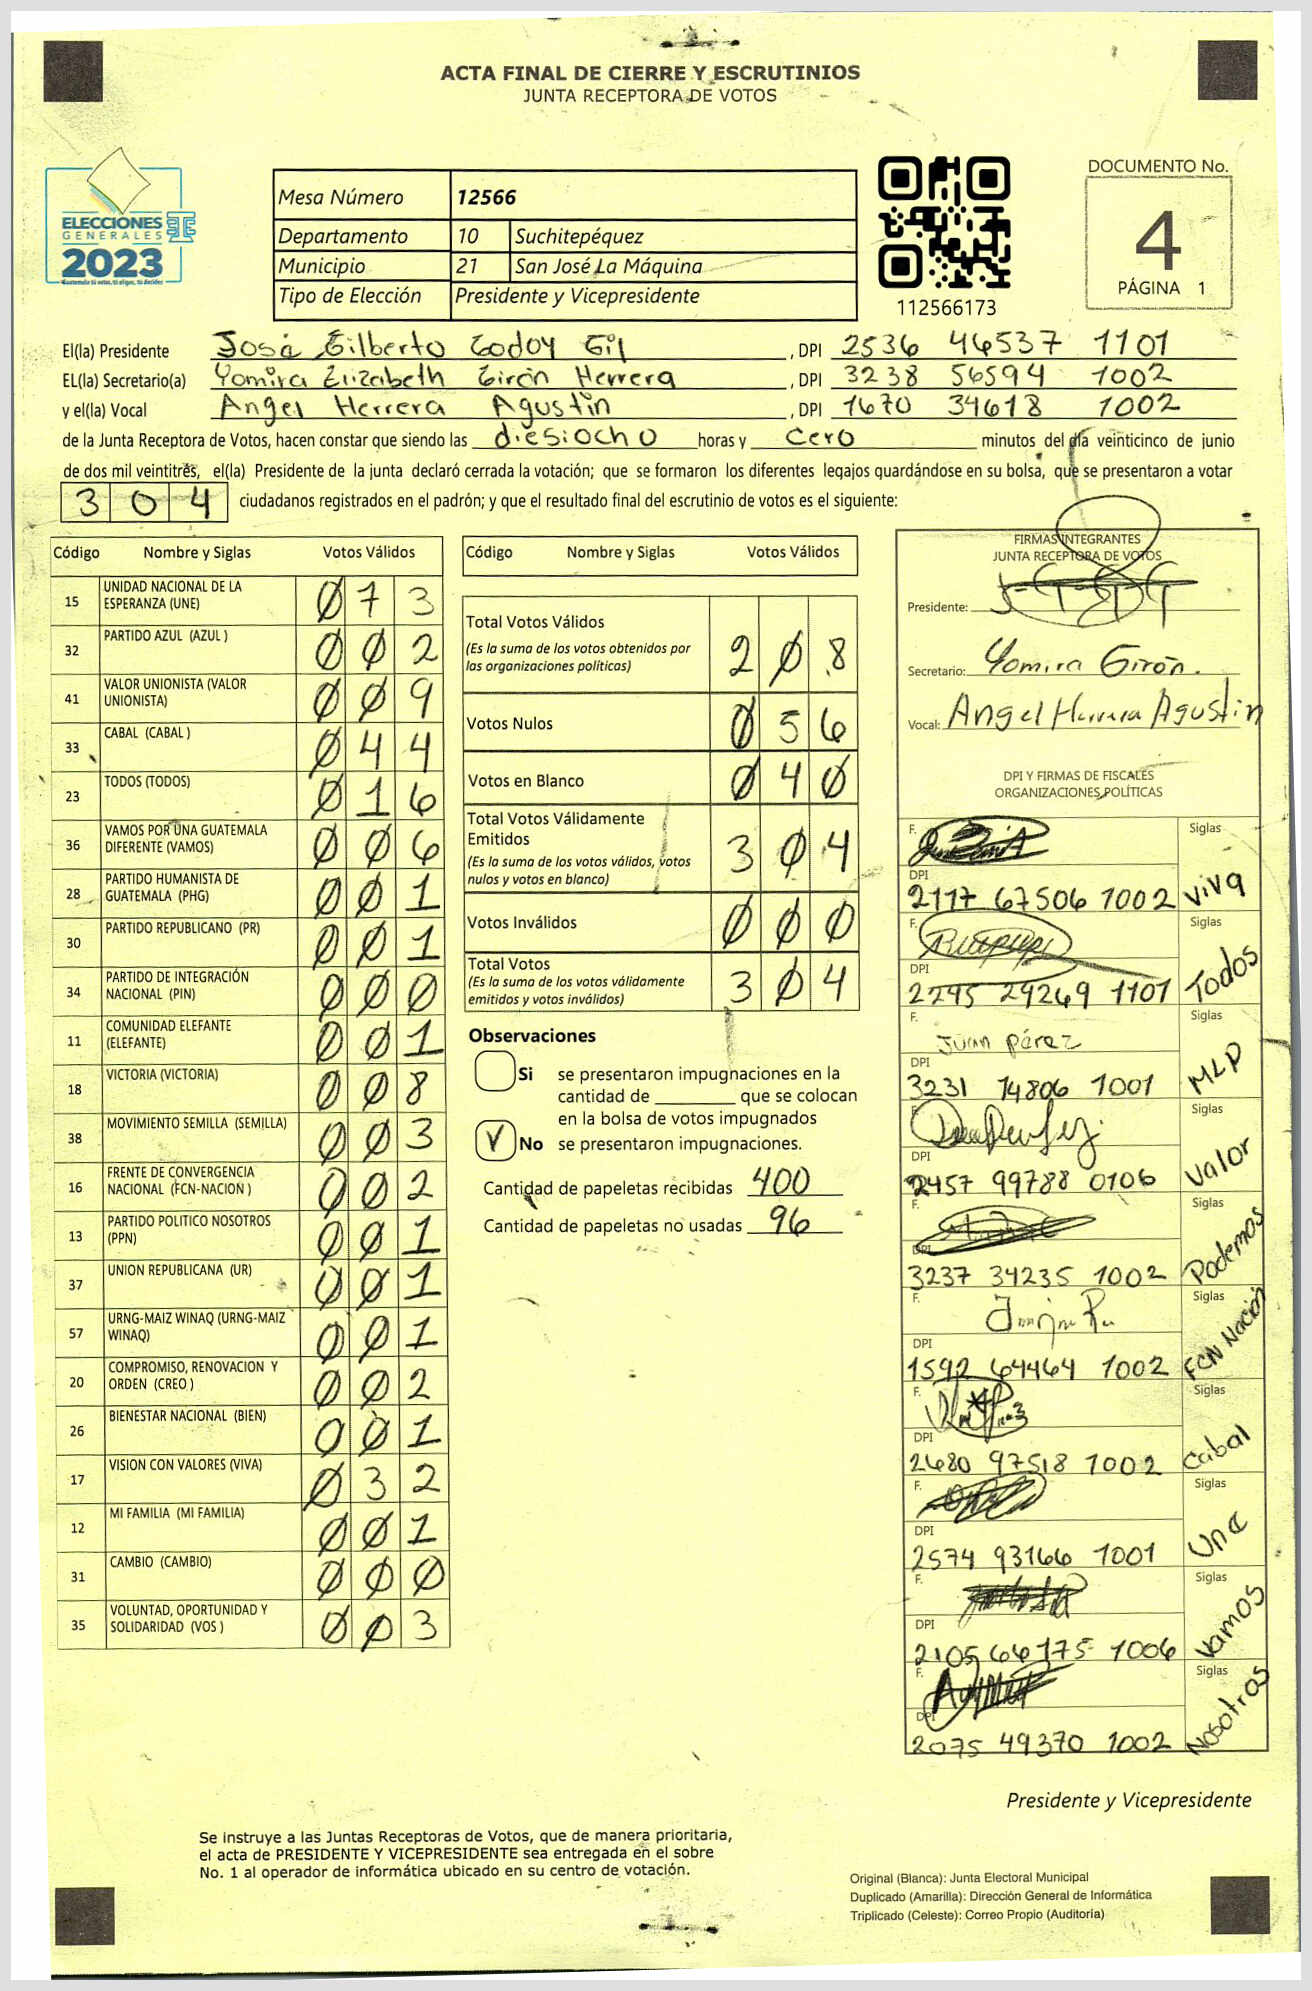 ACTA FINAL DE CIERRE Y ESCRUTINIOS
JUNTA RECEPTORA DE VOTOS
ELECCIONES
GENERALES
2023
Mesa Número 12566
Departamento 10 Suchitepéquez
Municipio 21 San José La Máquina
Tipo de Elección Presidente y Vicepresidente
112566173
DOCUMENTO No.
4
PÁGINA 1
El(la) Presidente José Gilberto Godoy Gil , DPI 2536 46537 1101
EL(la) Secretario(a) Yomira Elizabeth Girón Herrera , DPI 3238 56594 1002
y el(la) Vocal Angel Herrera Agustin , DPI 1670 34618 1002
de la Junta Receptora de Votos, hacen constar que siendo las diesiocho horas y cero minutos del día veinticinco de junio
de dos mil veintitrés, el(la) Presidente de la junta declaró cerrada la votación; que se formaron los diferentes legajos guardándose en su bolsa, que se presentaron a votar
304 ciudadanos registrados en el padrón; y que el resultado final del escrutinio de votos es el siguiente:
Código Nombre y Siglas Votos Válidos
15 UNIDAD NACIONAL DE LA ESPERANZA (UNE) 073
32 PARTIDO AZUL (AZUL ) 002
41 VALOR UNIONISTA (VALOR UNIONISTA) 009
33 CABAL (CABAL ) 044
23 TODOS (TODOS) 016
36 VAMOS POR UNA GUATEMALA DIFERENTE (VAMOS) 006
28 PARTIDO HUMANISTA DE GUATEMALA (PHG) 001
30 PARTIDO REPUBLICANO (PR) 001
34 PARTIDO DE INTEGRACIÓN NACIONAL (PIN) 000
11 COMUNIDAD ELEFANTE (ELEFANTE) 001
18 VICTORIA (VICTORIA) 008
38 MOVIMIENTO SEMILLA (SEMILLA) 003
16 FRENTE DE CONVERGENCIA NACIONAL (FCN-NACION ) 002
13 PARTIDO POLITICO NOSOTROS (PPN) 001
37 UNION REPUBLICANA (UR) 001
57 URNG-MAIZ WINAQ (URNG-MAIZ WINAQ) 001
20 COMPROMISO, RENOVACION Y ORDEN (CREO ) 002
26 BIENESTAR NACIONAL (BIEN) 001
17 VISION CON VALORES (VIVA) 032
12 MI FAMILIA (MI FAMILIA) 001
31 CAMBIO (CAMBIO) 000
35 VOLUNTAD, OPORTUNIDAD Y SOLIDARIDAD (VOS ) 003
Código Nombre y Siglas Votos Válidos
Total Votos Válidos 208
(Es la suma de los votos obtenidos por las organizaciones políticas)
Votos Nulos 056
Votos en Blanco 040
Total Votos Válidamente Emitidos 304
(Es la suma de los votos válidos, votos nulos y votos en blanco)
Votos Inválidos 000
Total Votos 304
(Es la suma de los votos válidamente emitidos y votos inválidos)
Observaciones
Si se presentaron impugnaciones en la
cantidad de ________ que se colocan
en la bolsa de votos impugnados
V No se presentaron impugnaciones.
Cantidad de papeletas recibidas 400
Cantidad de papeletas no usadas 96
FIRMAS INTEGRANTES
JUNTA RECEPTORA DE VOTOS
Presidente:
Secretario: Yomira Girón.
Vocal: Angel Herrera Agustin
DPI Y FIRMAS DE FISCALES
ORGANIZACIONES POLÍTICAS
F. Siglas
DPI
2117 67506 1002 Viva
F. Siglas
DPI
2295 29269 1101 Todos
F. Juan Pérez Siglas
DPI
3231 14806 1001 MLP
F. Siglas
DPI
2457 99788 0106 Valor
F. Siglas
DPI
3237 34235 1002 Podemos
F. Siglas
DPI
1592 64464 1002 FCN Nación
F. Siglas
DPI
2680 97518 1002 Cabal
F. Siglas
DPI
2574 93166 1001 Une
F. Siglas
DPI
2105 66175 1006 Vamos
F. Siglas
DPI
2075 49370 1002 Nosotros
Presidente y Vicepresidente
Se instruye a las Juntas Receptoras de Votos, que de manera prioritaria,
el acta de PRESIDENTE Y VICEPRESIDENTE sea entregada en el sobre
No. 1 al operador de informática ubicado en su centro de votación.
Original (Blanca): Junta Electoral Municipal
Duplicado (Amarilla): Dirección General de Informática
Triplicado (Celeste): Correo Propio (Auditoría)